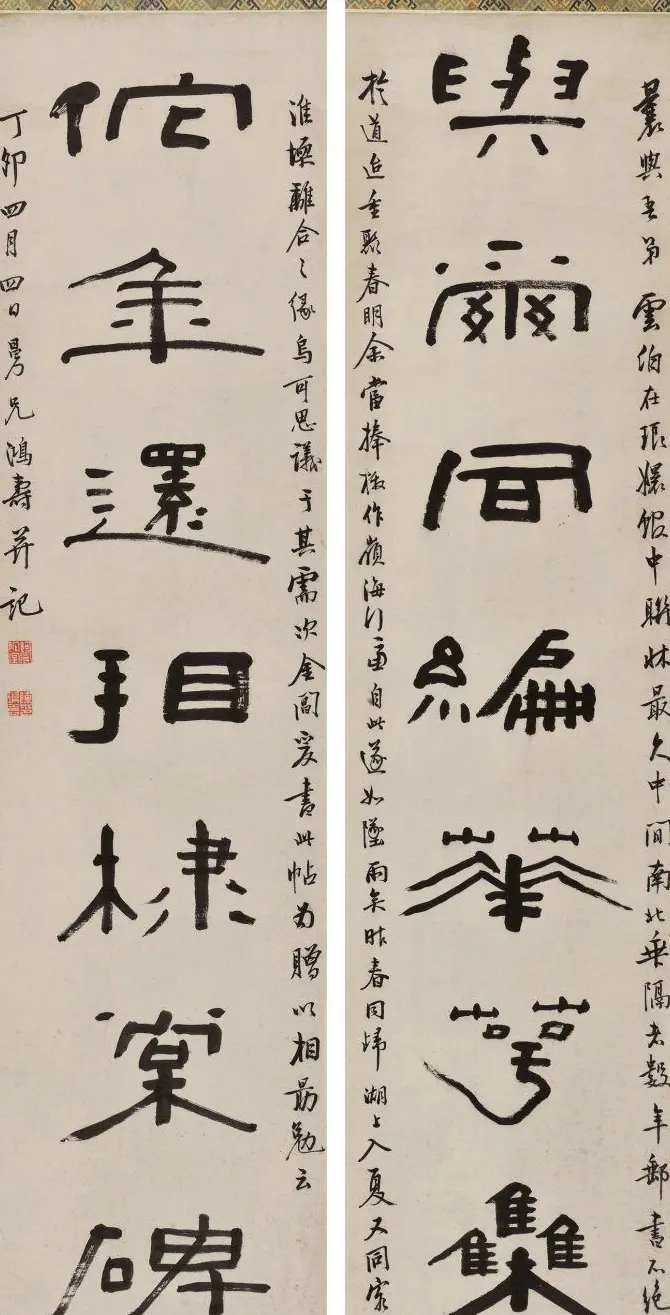 曩與吾弟雲伯在琅嬛館中聯牀最久中間南北乖隔者數年郵書不絕
與爾同編華萼集
於道迨重聚春明余當捧檄作嶺海行意自此遂如墜雨矣昨春同歸湖上入夏又同客
淮壖離合之緣烏可思議于其需次金閶爰書此帖為贈以相勗勉云
佗年還棣棠碑
丁卯四月四日曼兄鴻壽并記